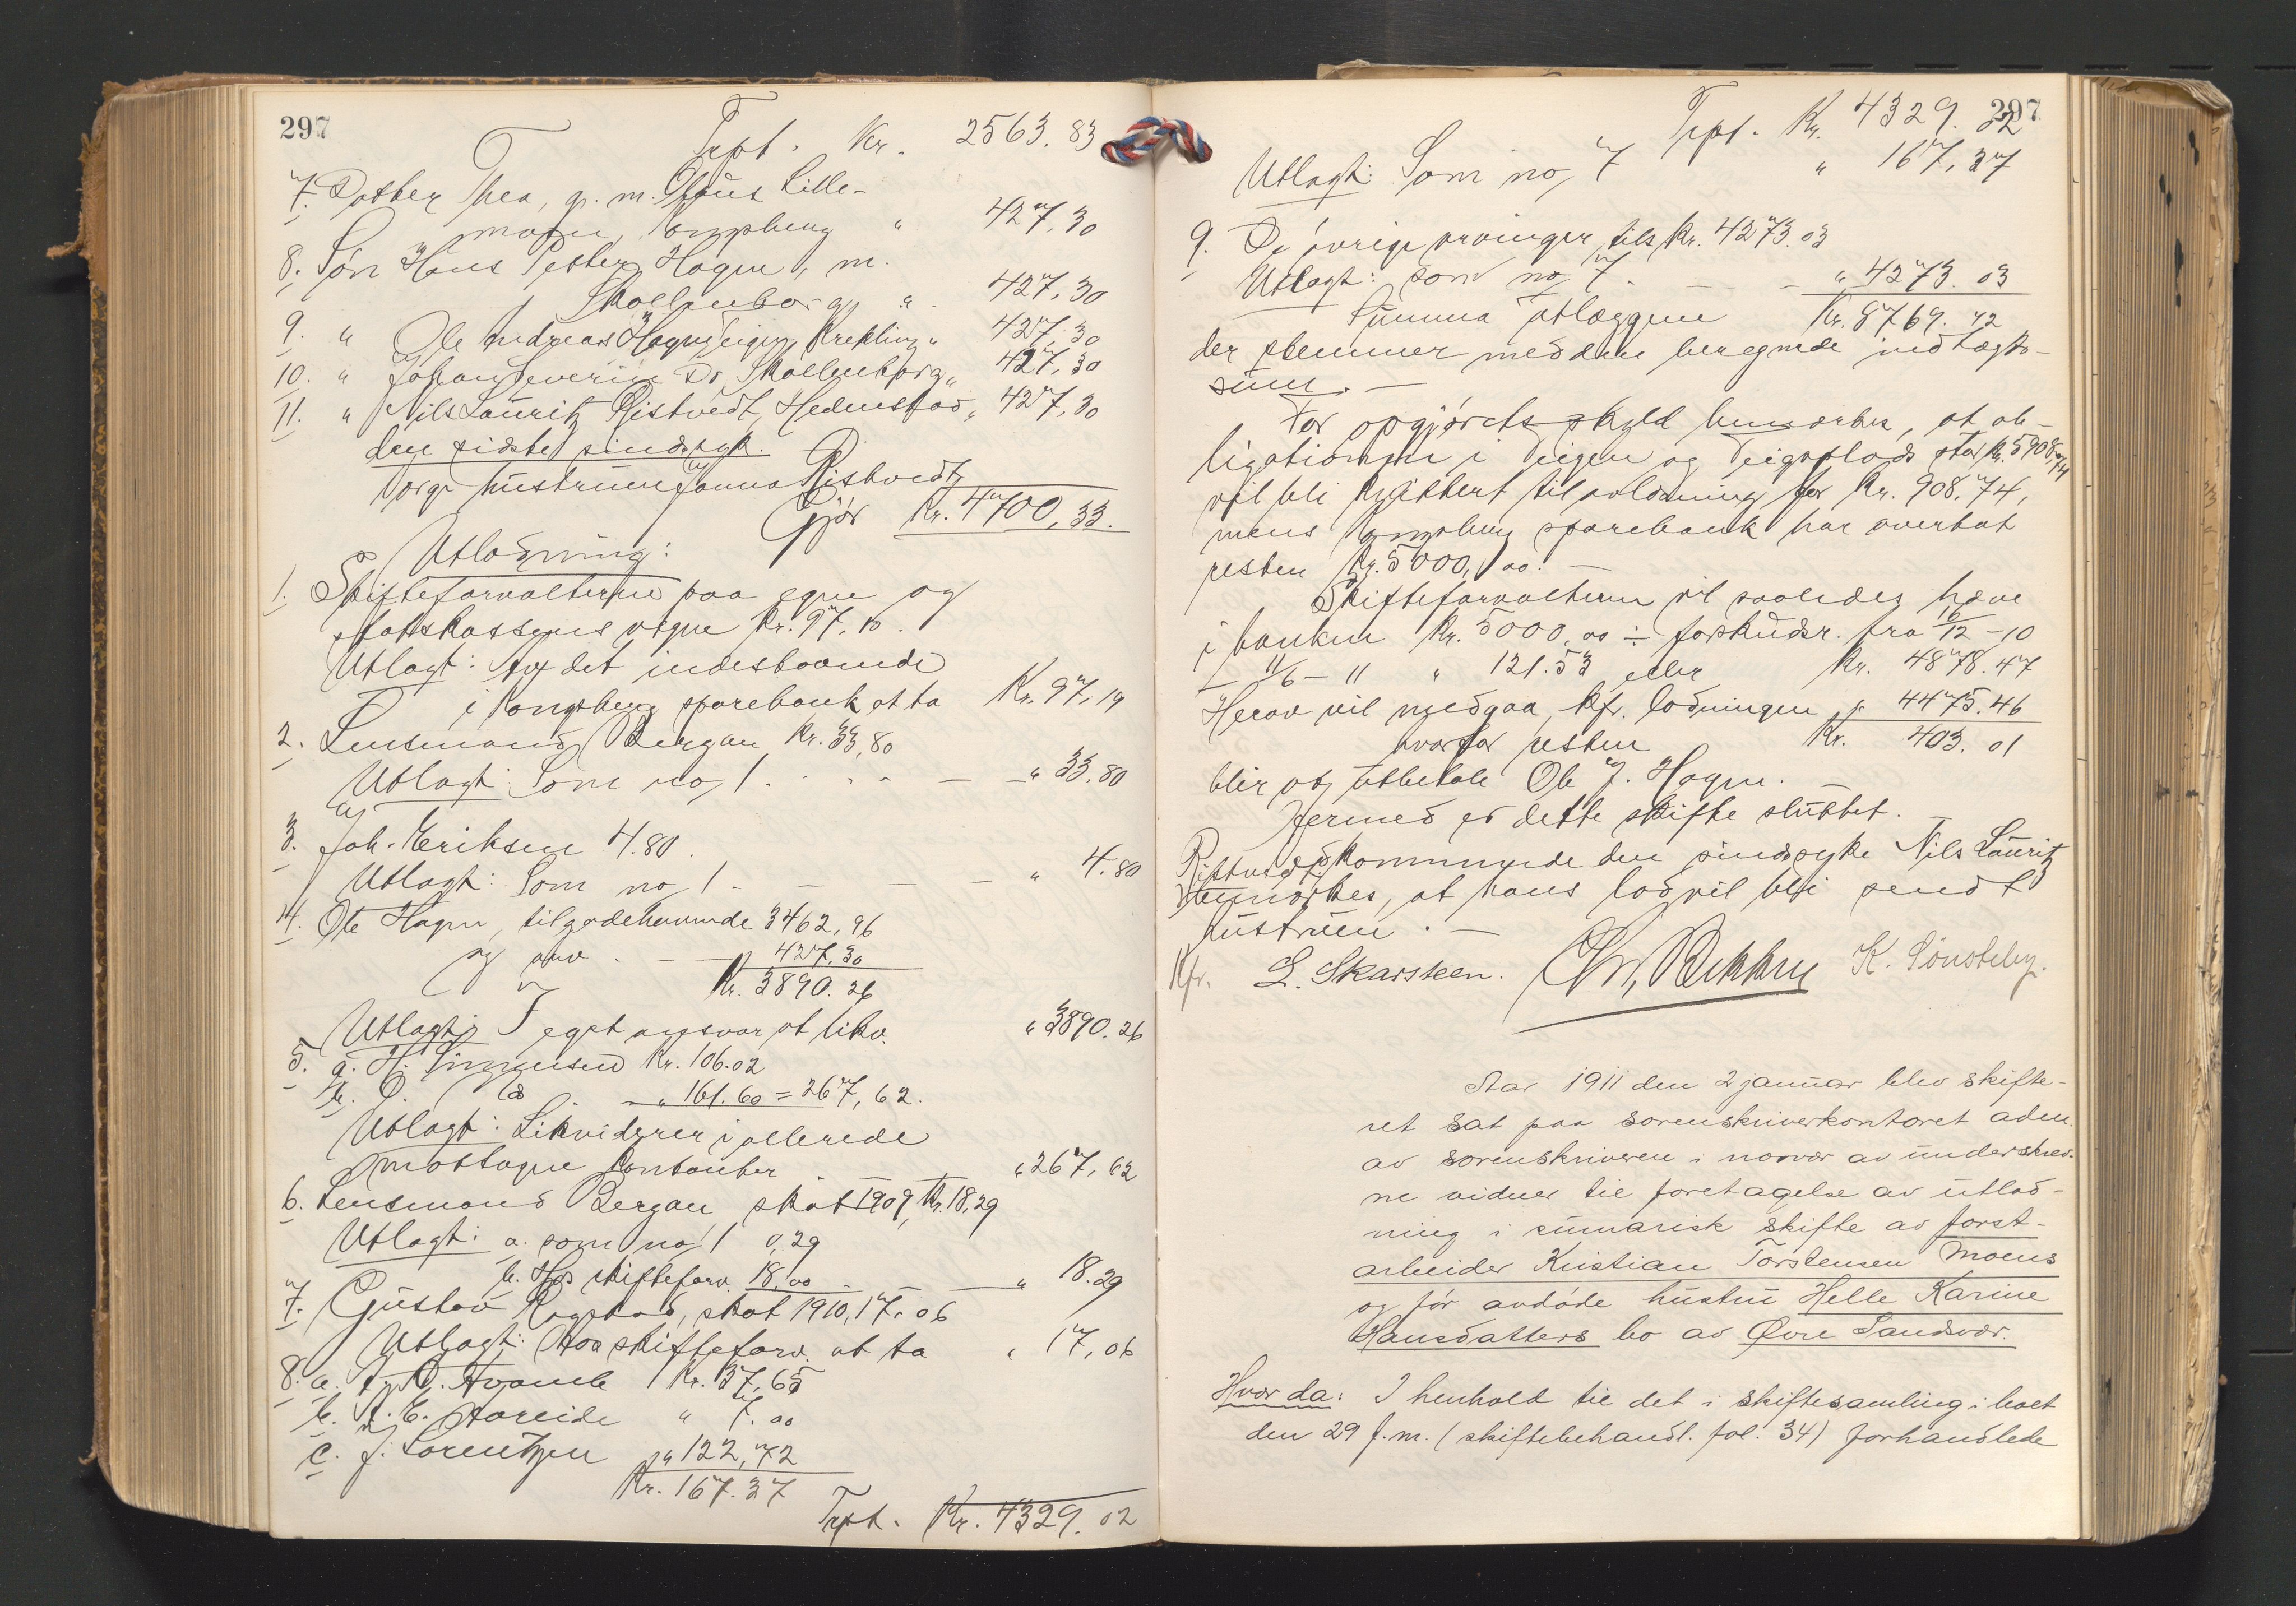 297
Trpt. Kr. 2563.83
7. Datter Thea, g. m. Olaus Lille-
moen, Kongsberg " 427,30
8. Søn Hans Petter Hagen, m.
Skollenborg " 427,30
9. " Ole Andreas Hagen, Krekling " 427,30
10. " Johan Severin Do Skollenborg " 427,30
11. " Nils Lauritz Ristvedt, Hedenstad " 427,30
den sidste sindssyk.
Vorge hustruen Janna Ristvedt
Gjør Kr. 4700,33.
Utlodning:
1. Skifteforvalteren paa egne og
statskassens vegne Kr. 97.19.
Utlagt: Av det indestaaende
i Kongsberg sparebank at ta Kr. 97,19
2. Lensmand Bergan Kr. 33,80
Utlagt: Som no 1 . . . - - " 33.80
3. Joh. Eriksen 4.80.
Utlagt: Som no 1 - - - - " 4.80
4. Ole Hagen, tilgodehavende 3462,96
og arv . - - 427,30
Kr. 3890.26
Utlagt: I eget ansvar at likv. " 3890.26
5. a. H. Simensen Kr. 106.02
b. O. Do - " 161.60 = 267,62.
Utlagt: Likviderer i allerede
mottagne kontanter - - " 267,62
6. Lensmand Bergan, skat 1909, Kr. 18,29
Utlagt: a. som no 1 0,29
b. Hos skifteforv. 18.00 - - " 18.29
7. Gustav Ragstad, skat 1910, 17.06
Utlagt: Hos skifteforv. at ta " 17,06
8. a. Kr. 37,65
b. " 7.00
c. J. Lorentzen " 122,72
Kr. 167.37
Trpt. Kr. 4329.02
297
Trpt. Kr. 4329.02
Utlagt: Som no 7 " 167,37
9. De øvrige arvinger tils Kr. 4273.03
Utlagt: som no 7. - - - " 4273.03
Summa utlæggene Kr. 8769.42
der stemmer med den beregnede indtægts-
sum. -
For opgjørets skyld bemerkes, at ob-
ligationen i Teigen og Teigsplads stor Kr. 5908,74
vil bli kvittert til avlæsning for Kr. 908.74,
mens Kongsberg sparebank har overtat
resten Kr. 5000,00. -
Skifteforvalteren vil saaledes hæve
i banken Kr. 5000,00 ÷ forskudsr. fra 16/12 - 10
- 11/6 - 11 " 121.53 eller Kr. 4878.47
Herav vil medgaa, kfr. lodningen " 4475.46
hvorfor resten Kr. 403.01
blir at utbetale Ole J. Hagen. -
Hermed er dette skifte sluttet.
Vedkommende den sindssyke Nils Lauritz
Ristvedt bemerkes, at hans lod vil bli sendt
hustruen. -
Kfr. L. Skarsteen. Chr. K. Sønsteby.
Aar 1911 den 2 januar blev skifte-
ret sat paa sorenskriverkontoret adm.
av sorenskriveren i nærvær av underskrev-
ne vidner til foretagelse av utlod-
ning i sumarisk skifte av forst-
arbeider Kristian Torstensen Moens
og før avdøde hustru Helle Karine
Hansdatters bo av Øvre Sandsvær.
Hvor da: I henhold til det i skiftesamling i boet
den 29 f. m. (skiftebehandl. fol. 34) forhandlede